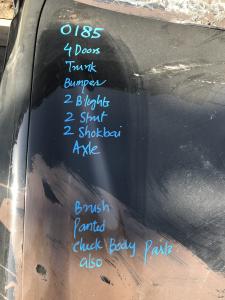 0185
4 Doors
Trunk
Bumper
2 Blights
2 Strut
2 Shokbai
Axle
Brush
Panted
Check Body Parts
also